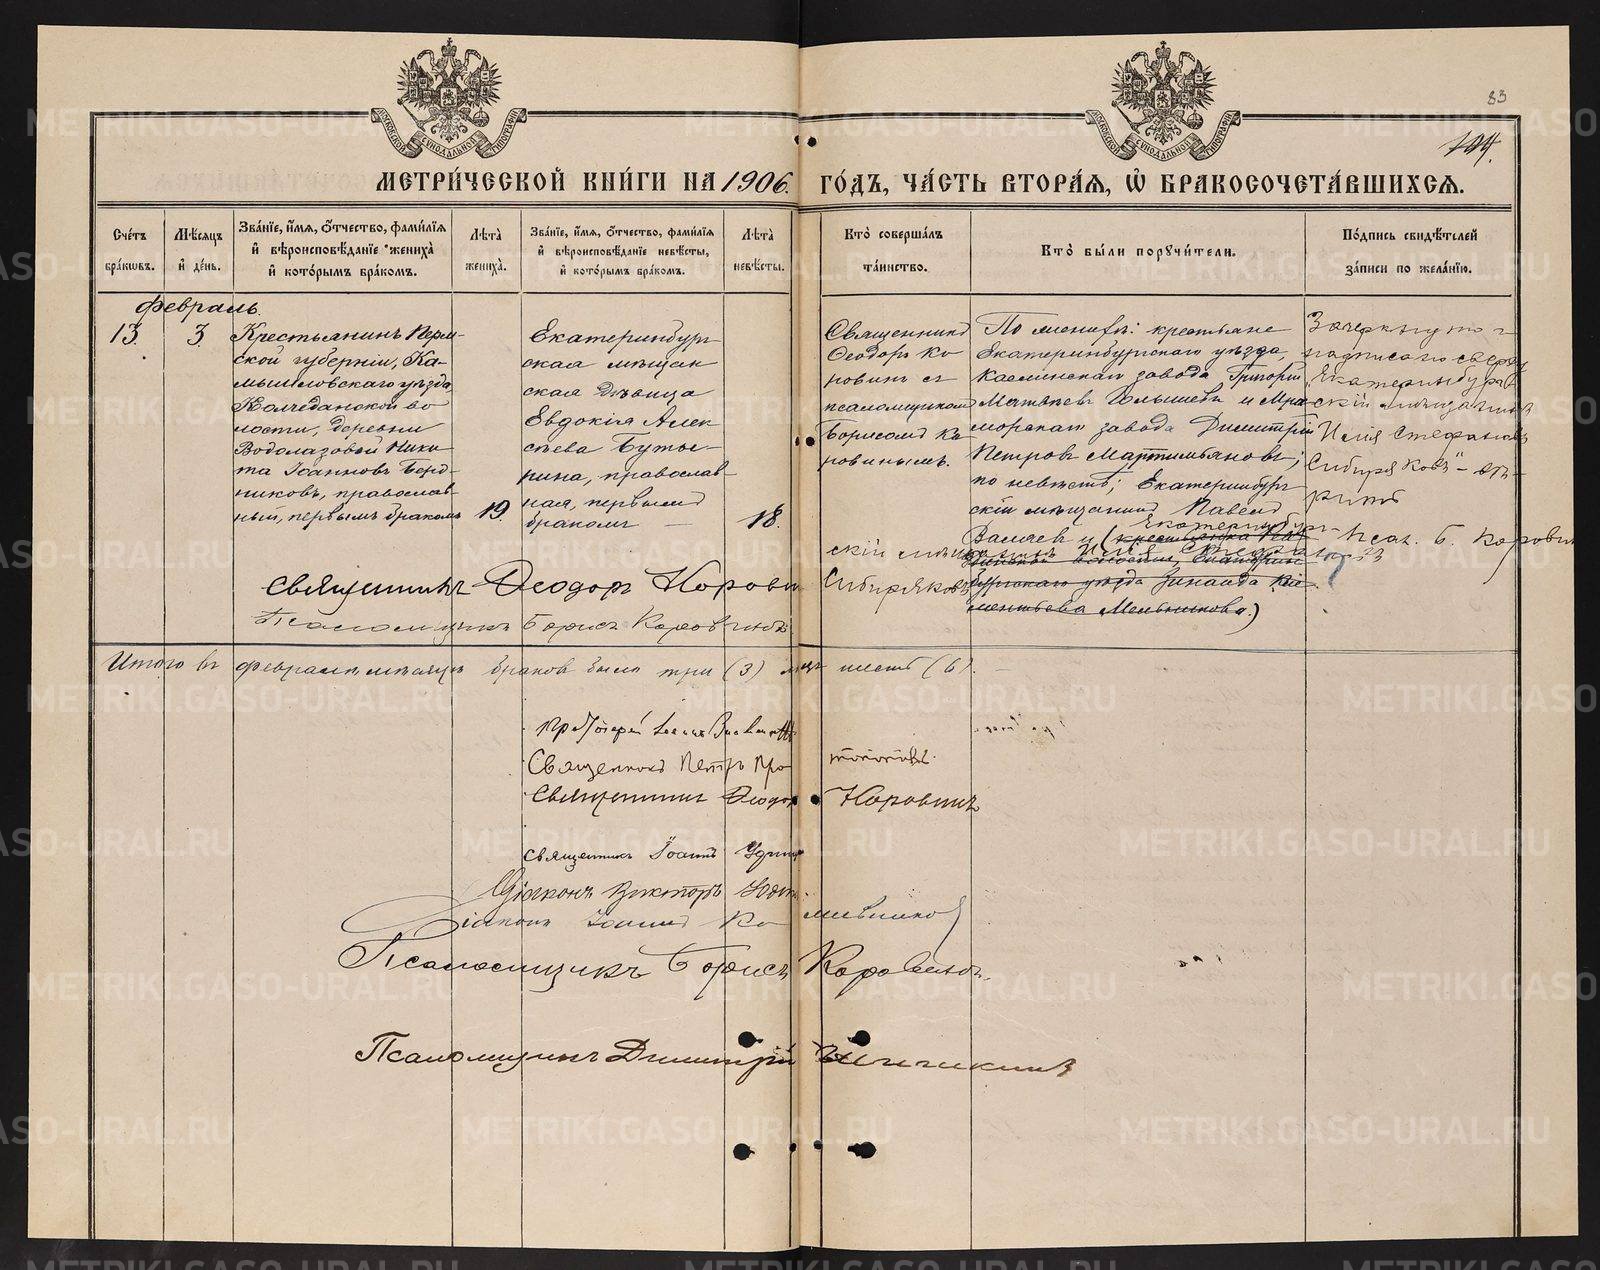 83
144.
МЕТРИ́ЧЕСКОЙ КНИ́ГИ НА 1906. ГО́ДЪ, ЧА́СТЬ ВТОРА́Я, Ѽ БРАКОСОЧЕТА́ВШИХСЯ.
Сче́тъ бра́ковъ.
Мѣ́сяцъ и҆ де́нь.
Зва́нїе, и҆́мя, ѻ҆́тчество, фами́лїя и҆ вѣроисповѣ́данїе жениха̀ и҆ кото́рымъ бра́комъ.
Лѣ́та жениха̀.
Зва́нїе, и҆́мя, ѻ҆́тчество, фами́лїя и҆ вѣроисповѣ́данїе невѣ́сты, и҆ кото́рымъ бра́комъ.
Лѣ́та невѣ́сты.
Кто̀ соверша́лъ та́инство.
Кто̀ бы́ли порꙋчи́тели.
По́дпись свидѣ́телей за́писи по жела́нїю.
Февраль.
13.
3.
Крестьянинъ Перм-
ской губерніи, Ка-
мышловскаго уѣзда,
Колчеданской во
лости, деревни
Водолазовой Ники
та Іоанновъ Берд-
никовъ, православ-
ный, первымъ бракомъ
19.
Екатеринбург
ская мѣщан
ская дѣвица
Евдокія Алек
сѣева Буты-
рина, православ-
ная, первымъ
бракомъ —
18.
Священникъ
Ѳеодоръ Ко
ровинъ съ
псаломщикомъ
Борисомъ Ко
ровинымъ.
По женихѣ: крестьяне
Екатеринбургскаго уѣзда,
Каслинскаго завода Григорій
Матвѣевъ Голышевъ и Мра
морскаго завода Димитрій
Петровъ Мартимьяновъ;
по невѣстѣ; Екатеринбург
скій мѣщанинъ Павелъ
Валяевъ и (крестьянка
Екатеринбург-
скій мѣщанинъ Илія Стефановъ
Сибиряковъ
бургскаго уѣзда Зинаида Кли
ментьева Мельникова.)
Зачеркнуто и
надписано сверху
„Екатеринбург
скій мѣщанинъ
Илія Стефановъ
Сибиряковъ“ – вѣ-
рить
Псал. Б. Коровин
Священникъ Ѳеодоръ Коровин
Псаломщикъ Борисъ Коровинъ
Итого въ февралѣ мѣсяцѣ браковъ было три (3) лицъ шесть (6).
Протоіерей Іоаннъ
Священникъ Петръ
Священникъ Ѳеодоръ Коровинъ
Священникъ Іоаннъ
Діаконъ Викторъ
Діаконъ Іоаннъ
Псаломщикъ Борисъ Коровинъ.
Псаломщикъ Димитрій
METRIKI.GASO-URAL.RU